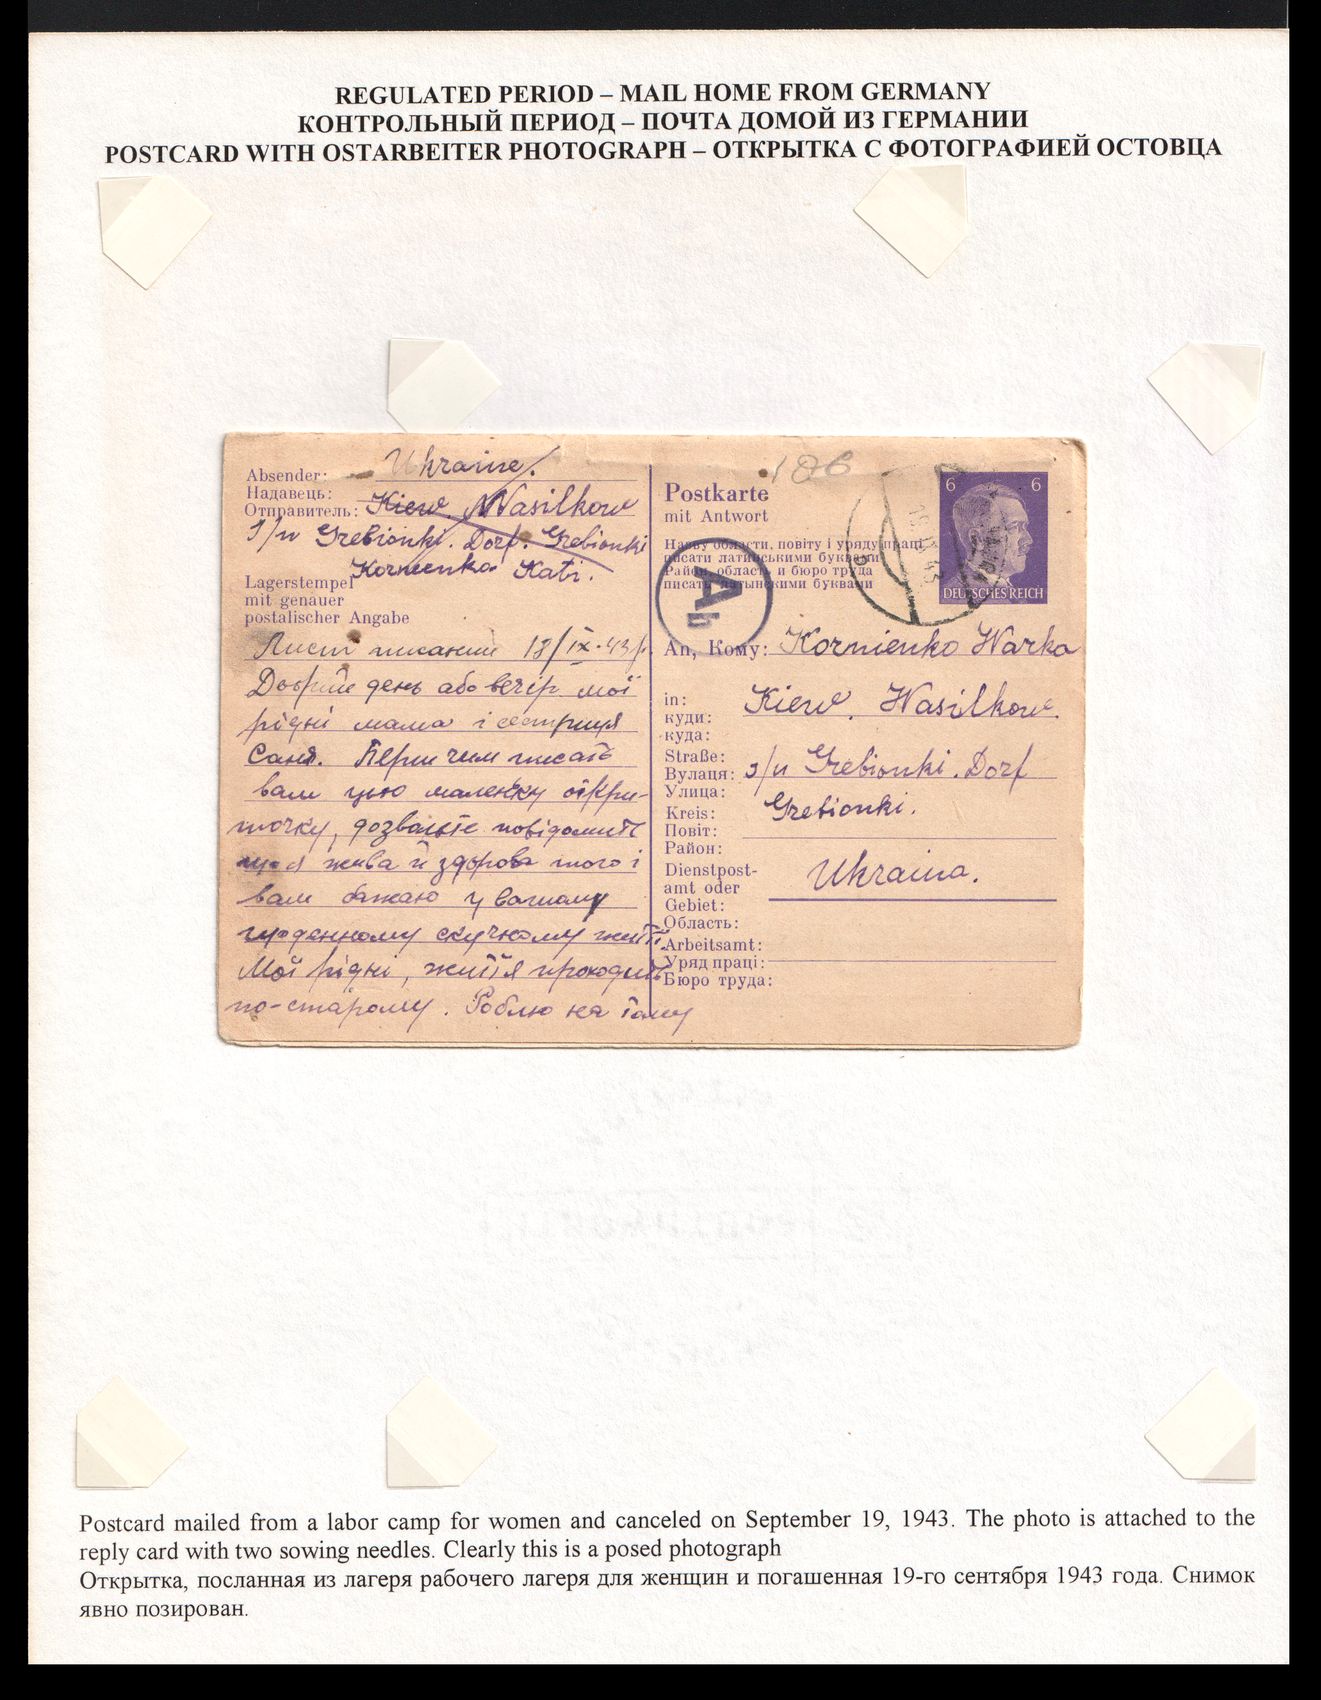 REGULATED PERIOD – MAIL HOME FROM GERMANY
КОНТРОЛЬНЫЙ ПЕРИОД – ПОЧТА ДОМОЙ ИЗ ГЕРМАНИИ
POSTCARD WITH OSTARBEITER PHOTOGRAPH – ОТКРЫТКА С ФОТОГРАФИЕЙ ОСТОВЦА
Absender: Ukraine.
Надавець:
Отправитель: Kiew. Wasilkow
Grebionki. Dorf. Grebionki
Kornienko Kati.
Lagerstempel
mit genauer
postalischer Angabe
Лист писаний 12/IX-43р.
Добрий день або вечір мої
рідні мама і сестриця
Саня. Перш чим писать
вам цью маленку откри-
точку, дозвольте повідомить
що я жива й здорова того і
вам бажаю у вашому
щоденному скучному житті.
Мої рідні, життя проходить
по-старому. Роблю на тому
186
Postkarte
mit Antwort
Назву области, повіту і уряду праці
писати латинськими буквами
Район, область и бюро труда
писать латынскими буквами
6 6
DEUTSCHES REICH
b
Ab
An, Кому: Kornienko Warka
in:
куди: Kiew. Wasilkow.
куда:
Straße:
Вулаця: Grebionki. Dorf
Улица:
Kreis: Grebionki.
Повіт:
Район:
Dienstpost-
amt oder Ukraina.
Gebiet:
Область:
Arbeitsamt:
Уряд праці:
Бюро труда:
Postcard mailed from a labor camp for women and canceled on September 19, 1943. The photo is attached to the
reply card with two sowing needles. Clearly this is a posed photograph
Открытка, посланная из лагеря рабочего лагеря для женщин и погашенная 19-го сентября 1943 года. Снимок
явно позирован.